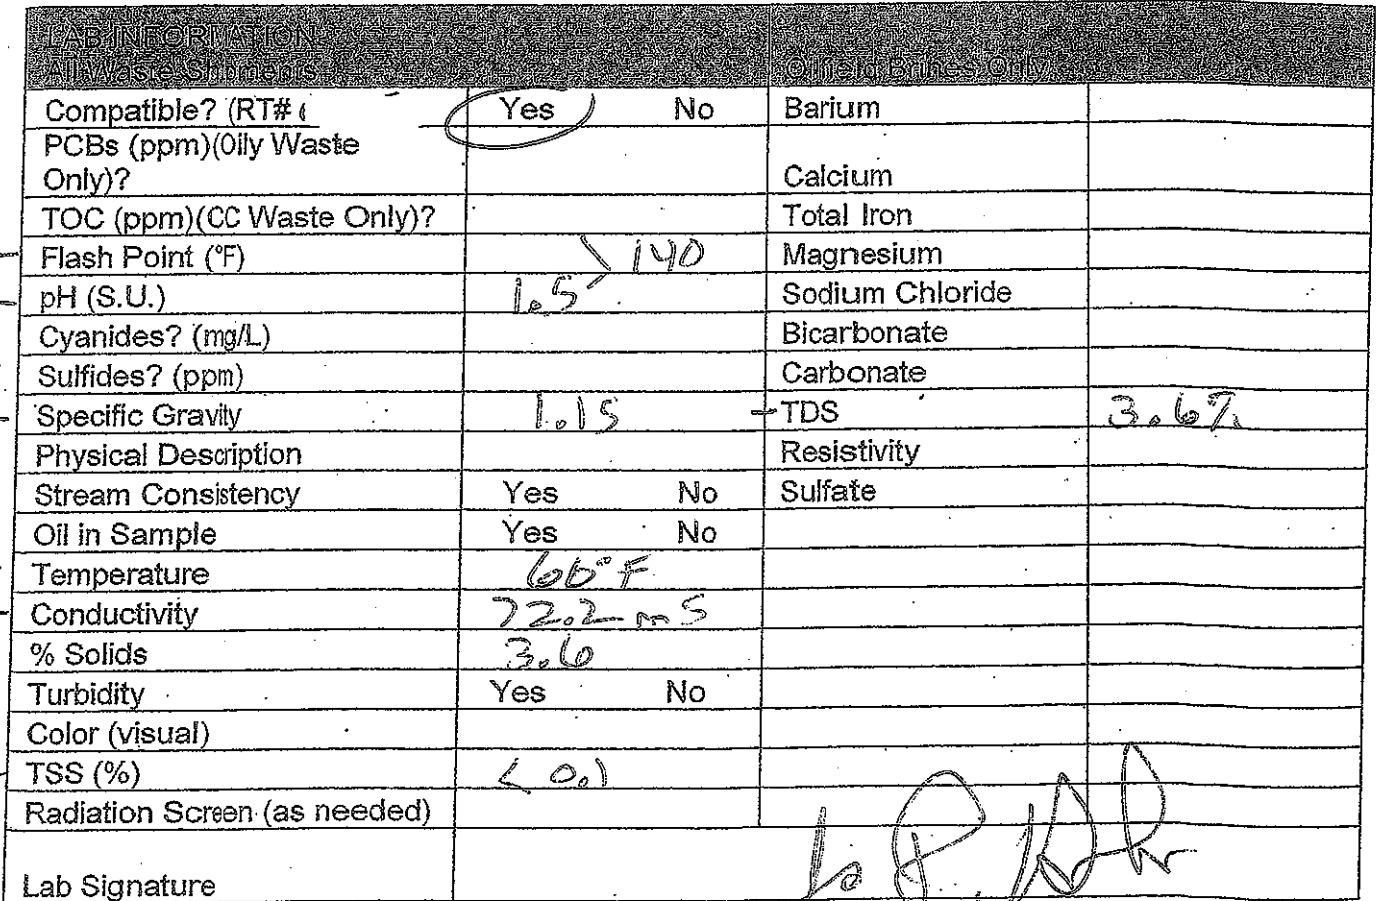 LAB INFORMATION
All Waste Shipments Oilfield Brines Only
Compatible? (RT# ( Yes No Barium
PCBs (ppm)(Oily Waste
Only)? Calcium
TOC (ppm)(CC Waste Only)? Total Iron
Flash Point (°F) > 140 Magnesium
pH (S.U.) 1.5 Sodium Chloride
Cyanides? (mg/L) Bicarbonate
Sulfides? (ppm) Carbonate
Specific Gravity 1.15 TDS 3.6%
Physical Description Resistivity
Stream Consistency Yes No Sulfate
Oil in Sample Yes No
Temperature 60°F
Conductivity 72.2 mS
% Solids 3.6
Turbidity Yes No
Color (visual)
TSS (%) < 0.1
Radiation Screen (as needed)
Lab Signature